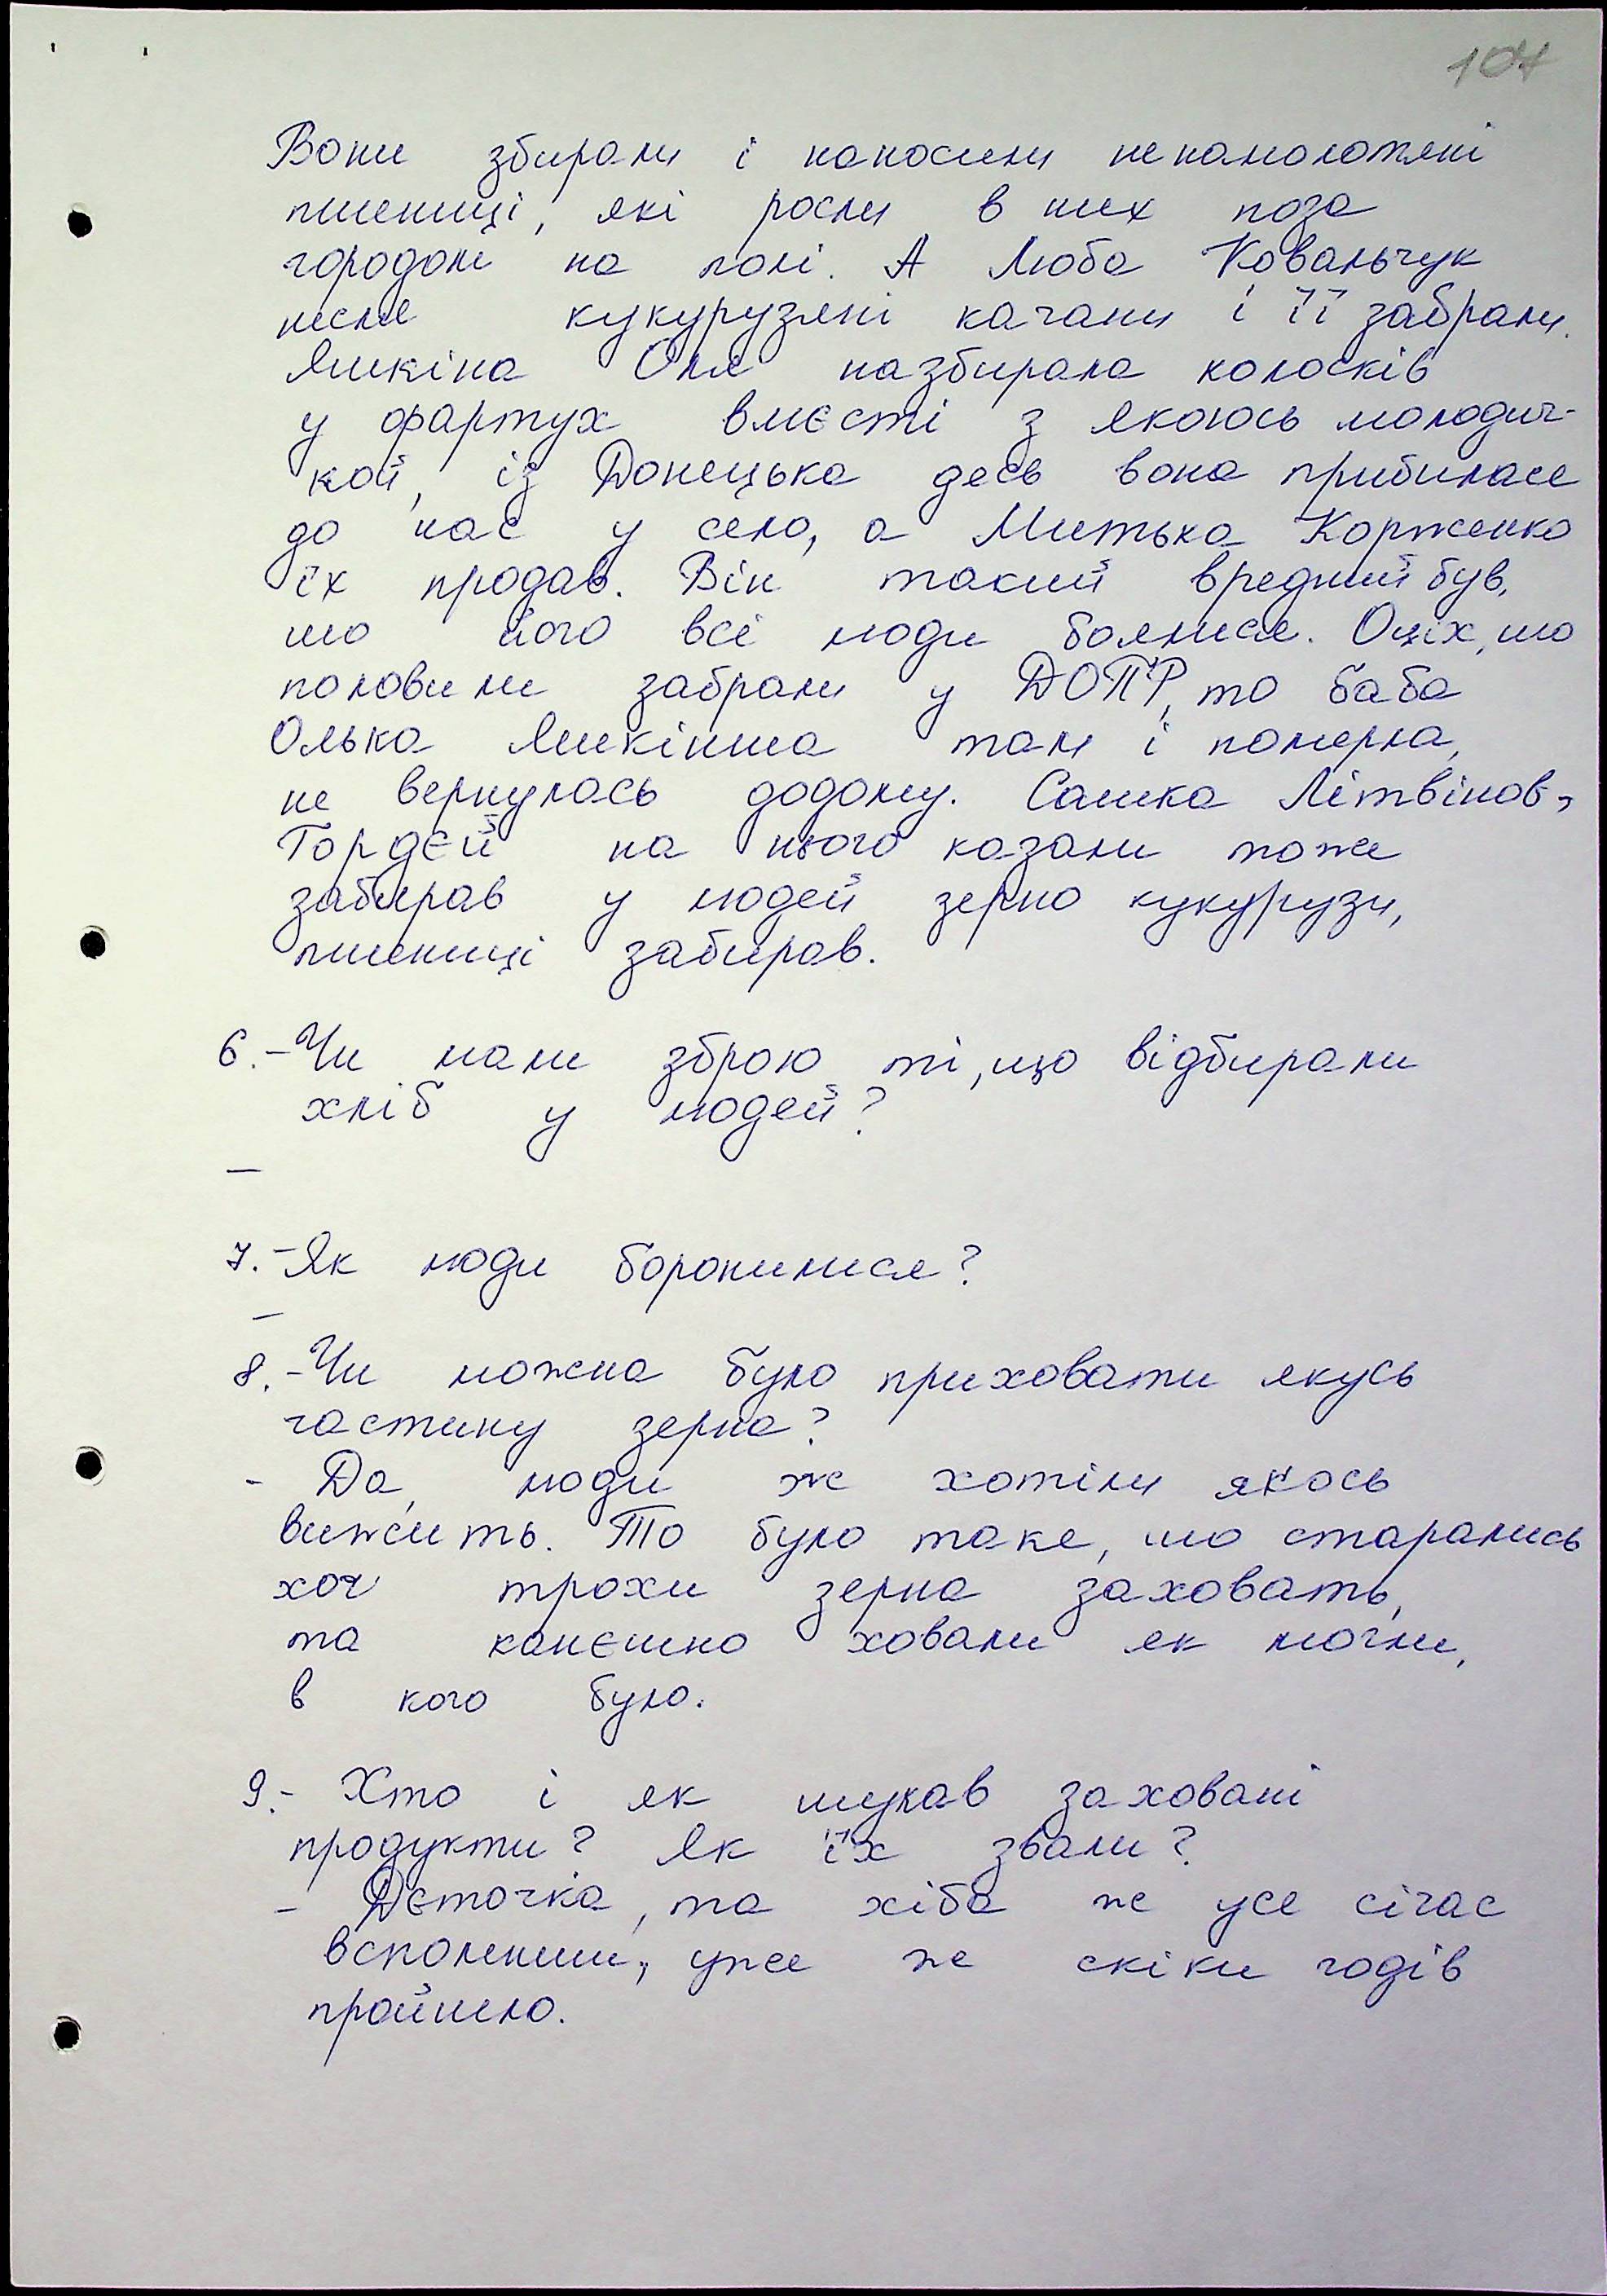 104
Вони збирали і наносили непомолотяні
пшениці, які росли в них поза
городом на полі. А Люба Ковальчук
несла кукурузяні качани і її забрали.
Яшкіна Оля назбирала колосків
у фартух вмєсті з якоюсь молодич-
кой, із Донецька десь вона прибилася
до нас у село, а Митька Корженко
їх продав. Він такий вредний був,
шо його всі люди боялися. Оціх, шо
половили забрали у ДОПР, то баба
Олька Яшкінша там і померла,
не вернулась додому. Сашка Літвінов,
Гордєй на нього казали тоже
забирав у людей зерно кукурузи,
пшениці забирав.
6.-Чи мали зброю ті, що відбирали
хліб у людей?
–
7.-Як люди боронилися?
–
8.-Чи можна було приховати якусь
частину зерна?
- Да, люди ж хотіли якось
вижить. То було таке, шо старались
хоч трохи зерна заховать,
та канєшно ховали як могли,
в кого було.
9.- Хто і як шукав заховані
продукти? Як їх звали?
- Дєточка, та хіба же усе січас
вспомниш, уже же скіки годів
пройшло.